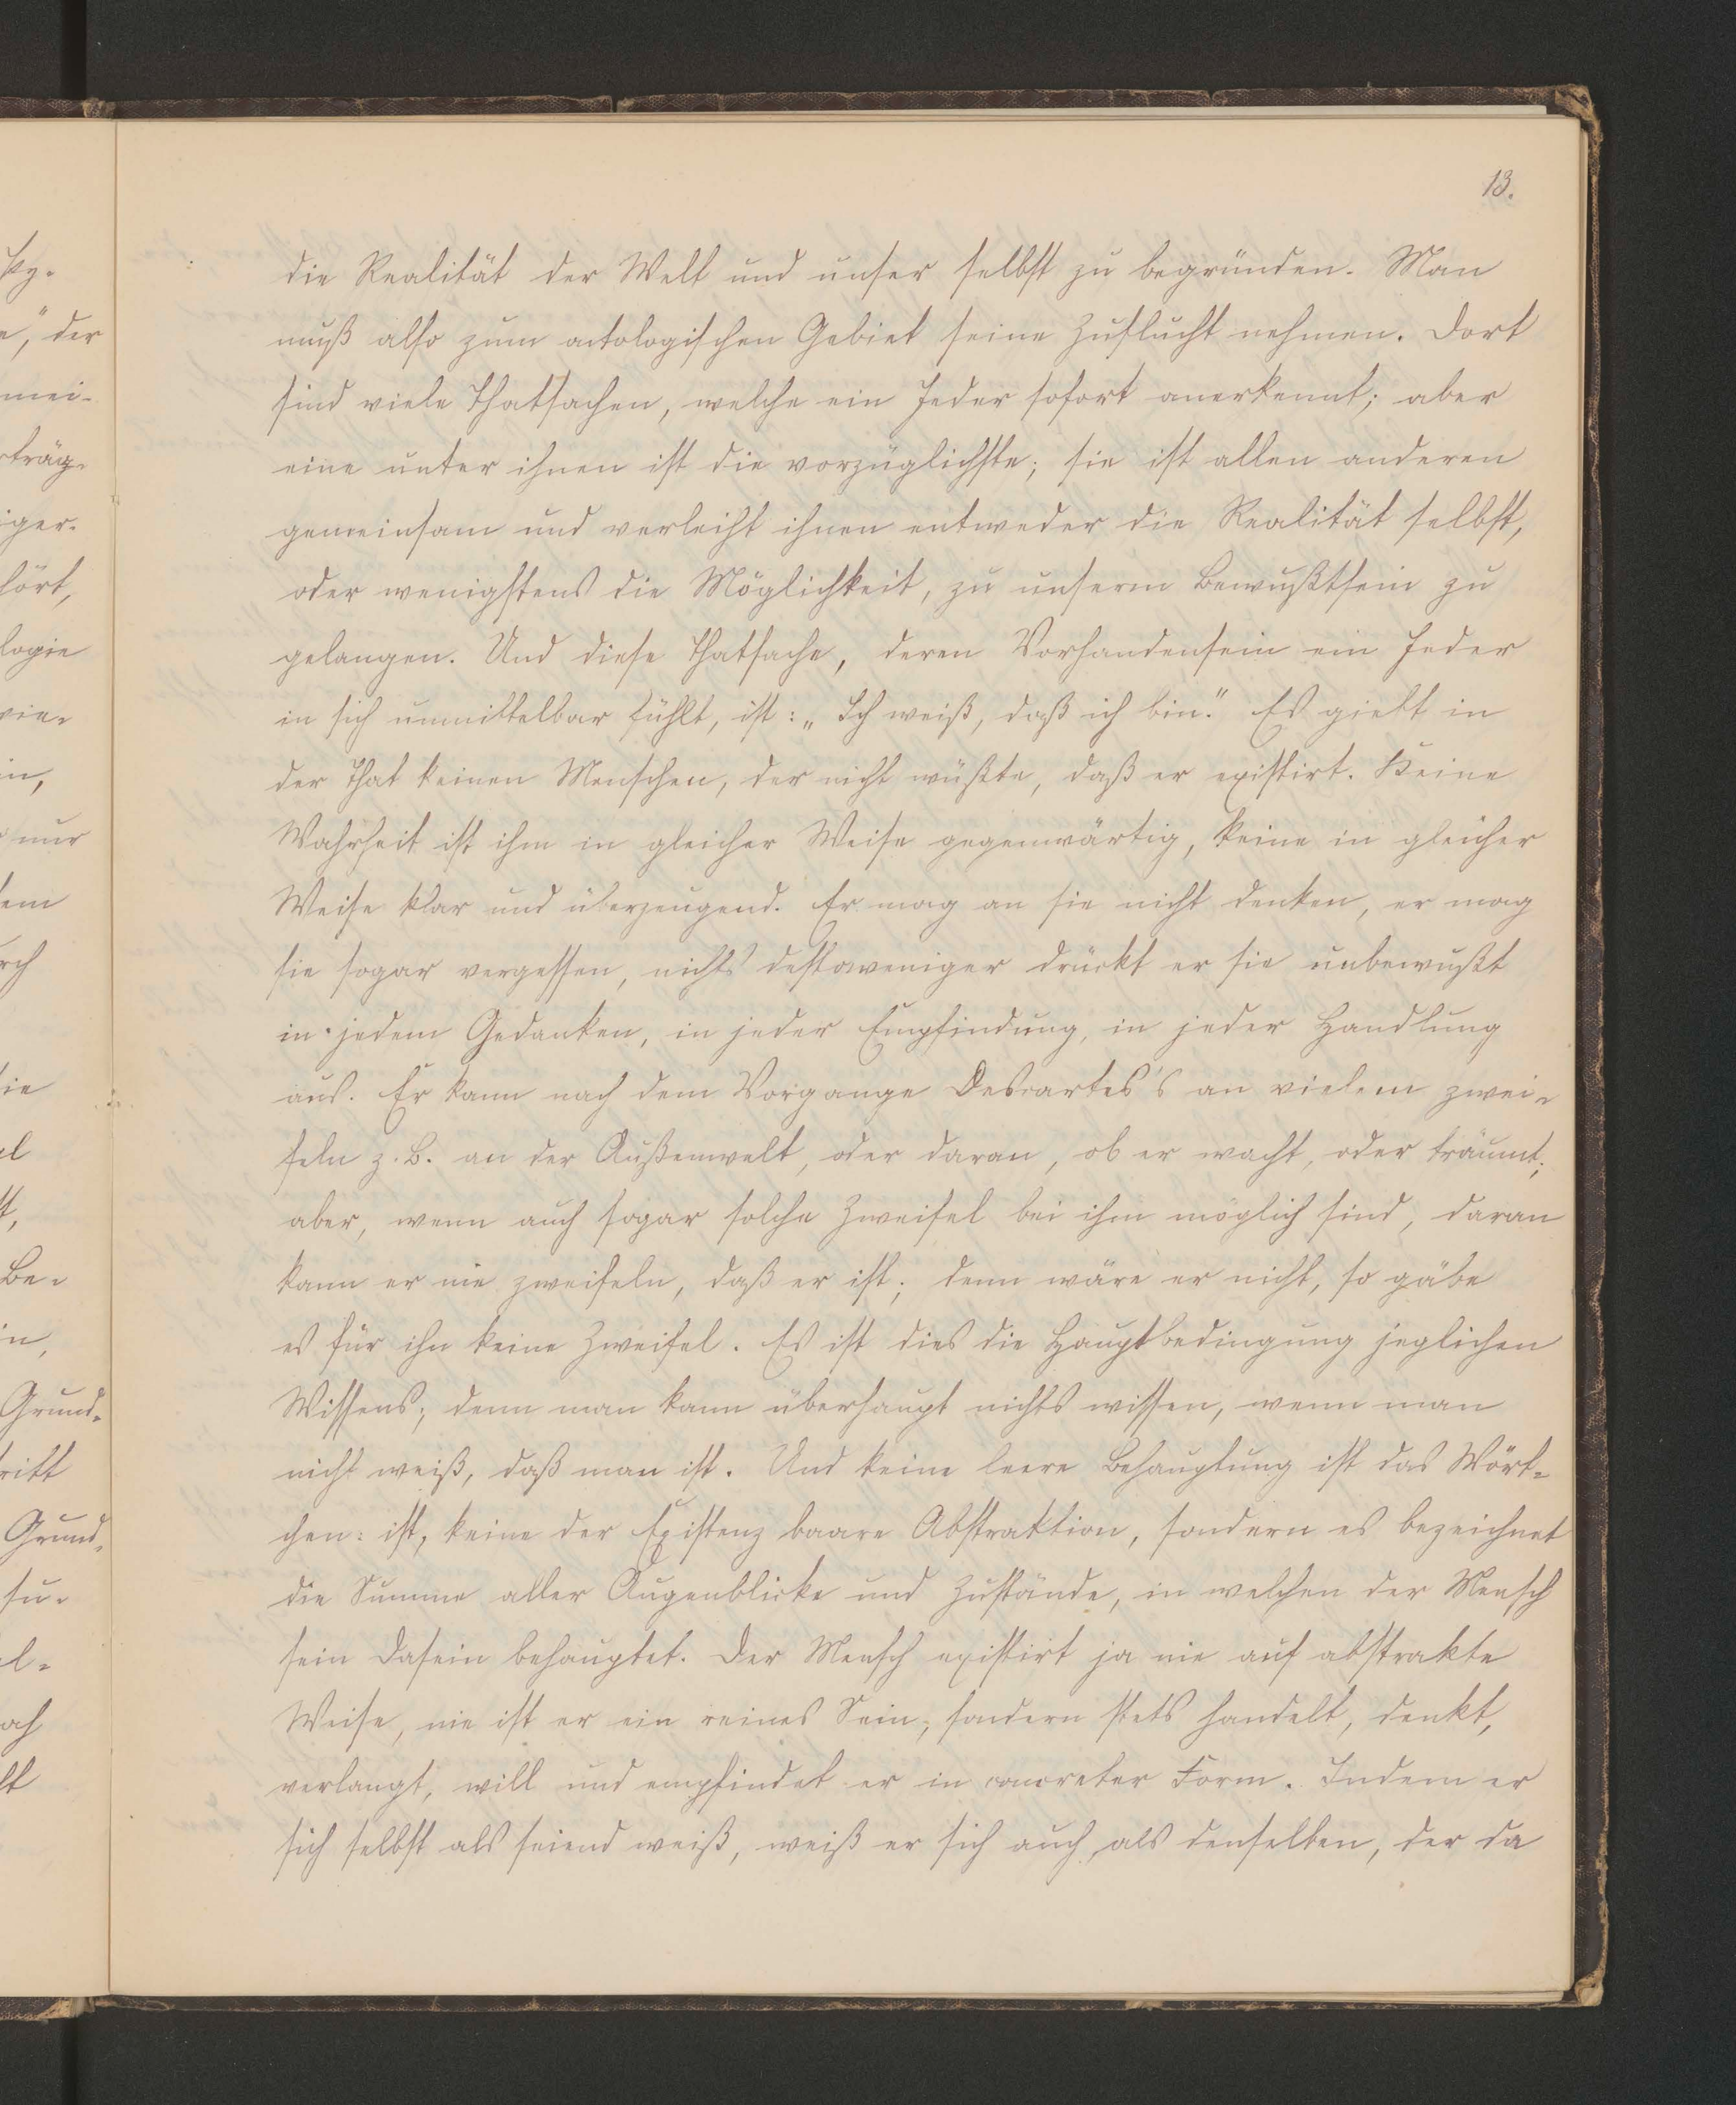 13.
die Realität der Welt und unser selbst zu begründen. Man
muß also zum ontologischen Gebiet seine Zuflucht nehmen. Dort
sind viele Thatsachen, welche ein Jeder sofort anerkennt; aber
eine unter ihnen ist die vorzüglichste; sie ist allen anderen
gemeinsam und verleiht ihnen entweder die Realität selbst,
oder wenigstens die Möglichkeit, zu unserm Bewußtsein zu
gelangen. Und diese Thatsache, deren Vorhandensein ein Jeder
in sich unmittelbar fühlt, ist: „Ich weiß, daß ich bin." Es giebt in
der That keinen Menschen, der nicht wüßte, daß er existirt. Keine
Wahrheit ist ihm in gleicher Weise gegenwärtig, keine in gleicher
Weise klar und überzeugend. Er mag an sie nicht denken, er mag
sie sogar vergessen, nichts destoweniger drückt er sie unbewußt
in jedem Gedanken, in jeder Empfindung, in jeder Handlung
aus. Er kann nach dem Vorgange Descartes's an vielem zwei-
feln z. B. an der Außenwelt, oder daran, ob er wacht, oder träumt;
aber, wenn auch sogar solche Zweifel bei ihm möglich sind, daran
kann er nie zweifeln, daß er ist; denn wäre er nicht, so gäbe
es für ihn keine Zweifel. Es ist dies die Hauptbedingung jeglichen
Wissens; denn man kann überhaupt nichts wissen, wenn man
nicht weiß, daß man ist. Und keine leere Behauptung ist das Wört-
chen: ist, keine der Existenz baare Abstraktion, sondern es bezeichnet
die Summe aller Augenblicke und Zustände, in welchen der Mensch
sein Dasein behauptet. Der Mensch existirt ja nie auf abstrakte
Weise, nie ist er ein reines Sein; sondern stets handelt, denkt,
verlangt, will und empfindet er in concreter Form. Indem er
sich selbst als seiend weiß, weiß er sich auch als denselben, der da